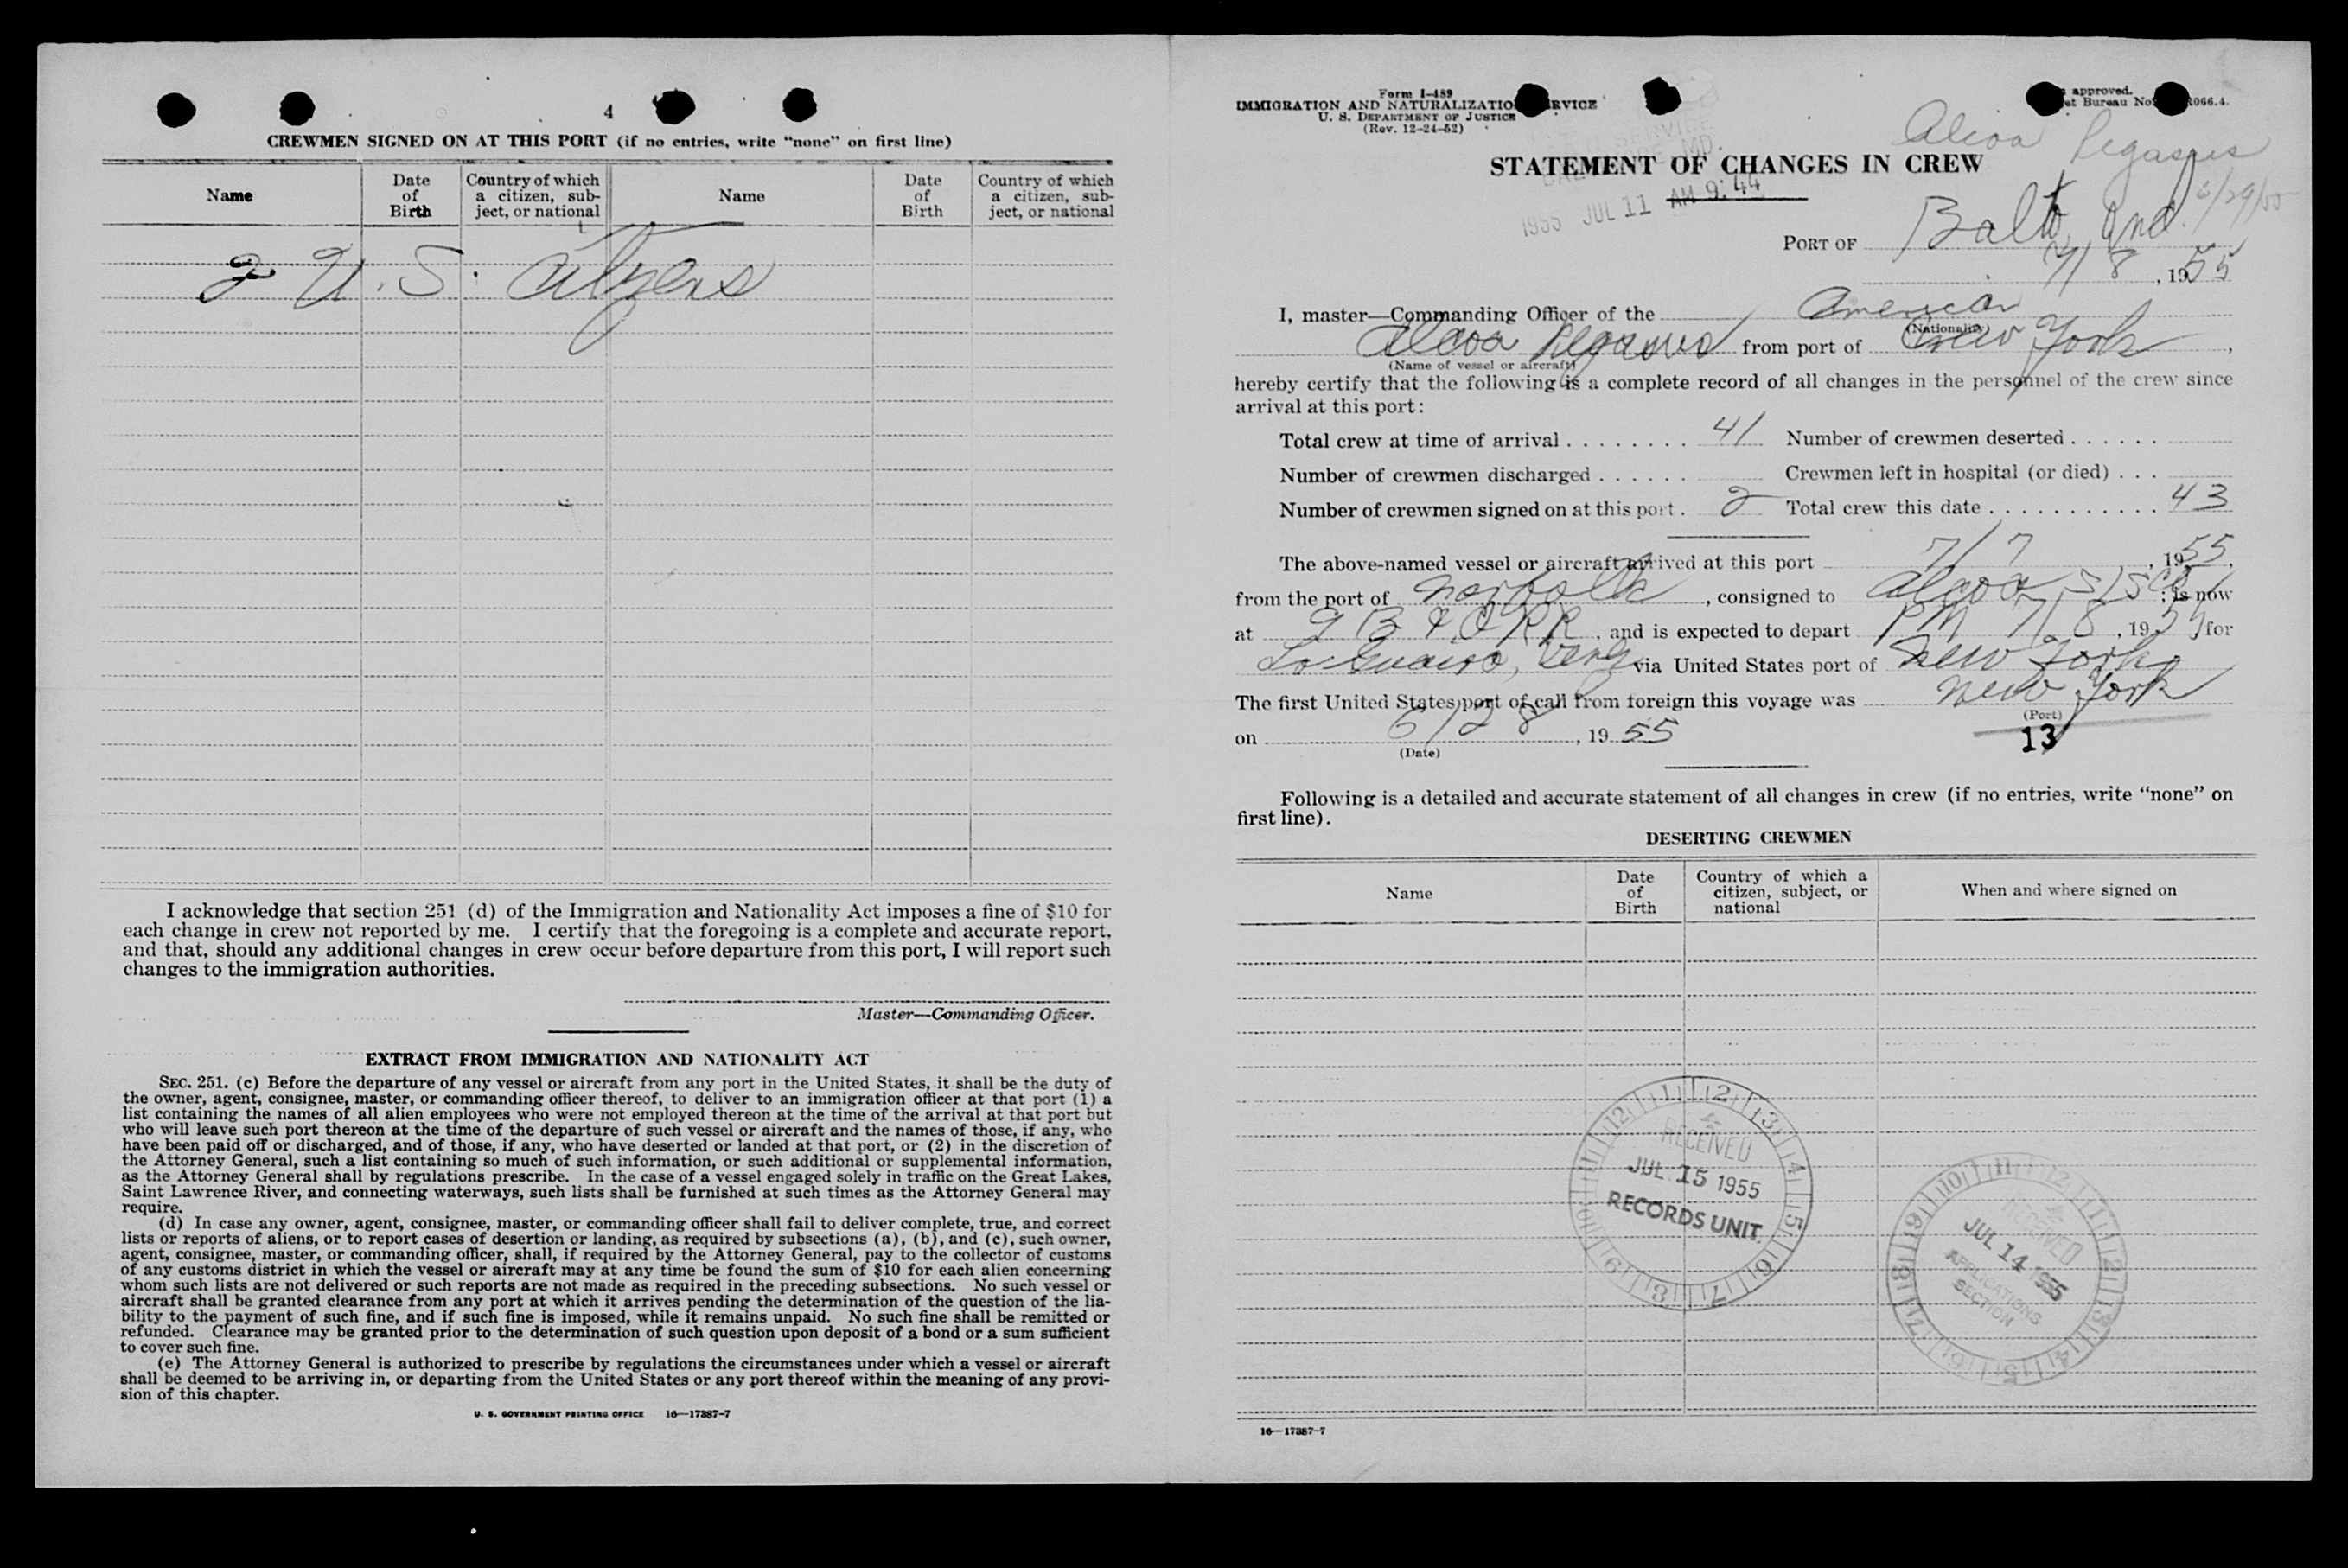 4
CREWMEN SIGNED ON AT THIS PORT (if no entries, write “none” on first line)
Name
Date of Birth
Country of which a citizen, subject, or national
Name
Date of Birth
Country of which a citizen, sub-ject, or national
2 U.S. Citizens
I acknowledge that section 251 (d) of the Immigration and Nationality Act imposes a fine of $10 for
each change in crew not reported by me. I certify that the foregoing is a complete and accurate report,
and that, should any additional changes in crew occur before departure from this port, I will report such
changes to the immigration authorities.
Master—Commanding Officer.
EXTRACT FROM IMMIGRATION AND NATIONALITY ACT
SEC. 251. (c) Before the departure of any vessel or aircraft from any port in the United States, it shall be the duty of
the owner, agent, consignee, master, or commanding officer thereof, to deliver to an immigration officer at that port (1) a
list containing the names of all alien employees who were not employed thereon at the time of the arrival at that port but
who will leave such port thereon at the time of the departure of such vessel or aircraft and the names of those, if any, who
have been paid off or discharged, and of those, if any, who have deserted or landed at that port, or (2) in the discretion of
the Attorney General, such a list containing so much of such information, or such additional or supplemental information,
as the Attorney General shall by regulations prescribe. In the case of a vessel engaged solely in traffic on the Great Lakes,
Saint Lawrence River, and connecting waterways, such lists shall be furnished at such times as the Attorney General may
require.
(d) In case any owner, agent, consignee, master, or commanding officer shall fail to deliver complete, true, and correct
lists or reports of aliens, or to report cases of desertion or landing, as required by subsections (a), (b), and (c), such owner,
agent, consignee, master, or commanding officer, shall, if required by the Attorney General, pay to the collector of customs
of any customs district in which the vessel or aircraft may at any time be found the sum of $10 for each alien concerning
whom such lists are not delivered or such reports are not made as required in the preceding subsections. No such vessel or
aircraft shall be granted clearance from any port at which it arrives pending the determination of the question of the lia-
bility to the payment of such fine, and if such fine is imposed, while it remains unpaid. No such fine shall be remitted or
refunded. Clearance may be granted prior to the determination of such question upon deposit of a bond or a sum sufficient
to cover such fine.
(e) The Attorney General is authorized to prescribe by regulations the circumstances under which a vessel or aircraft
shall be deemed to be arriving in, or departing from the United States or any port thereof within the meaning of any provi-
sion of this chapter.
U. S. GOVERNMENT PRINTING OFFICE 16—17387-7
Form I-489
IMMIGRATION AND NATURALIZATION SERVICE
U. S. DEPARTMENT OF JUSTICE
(Rev. 12-24-52)
approved.
Bureau No. 066.4.
Alcoa Pegasus
6/29/55
STATEMENT OF CHANGES IN CREW
1955 JUL 11 AM 9:44
PORT OF Balto, Md.
7/8, 1955
I, master—Commanding Officer of the American
(Nationality)
Alcoa Pegasus from port of New York,
(Name of vessel or aircraft)
hereby certify that the following is a complete record of all changes in the personnel of the crew since
arrival at this port:
Total crew at time of arrival . . . . . . . . 41 Number of crewmen deserted . . . . . .
Number of crewmen discharged . . . . . . Crewmen left in hospital (or died) . . .
Number of crewmen signed on at this port . 2 Total crew this date . . . . . . . . . . . . 43
The above-named vessel or aircraft arrived at this port 7/7, 1955,
from the port of Norfolk, consigned to Alcoa S/S Co; is now
at 9 B & O RR, and is expected to depart PM 7/8, 1955 for
La Guaira, Venz via United States port of New York
The first United States port of call from foreign this voyage was New York
(Port)
on 6/28, 1955
(Date)
13
Following is a detailed and accurate statement of all changes in crew (if no entries, write “none” on
first line).
DESERTING CREWMEN
Name
Date of Birth
Country of which a citizen, subject, or national
When and where signed on
RECEIVED
JUL 15 1955
RECORDS UNIT
RECEIVED
JUL 14 1955
APPLICATIONS
SECTION
16—17387-7